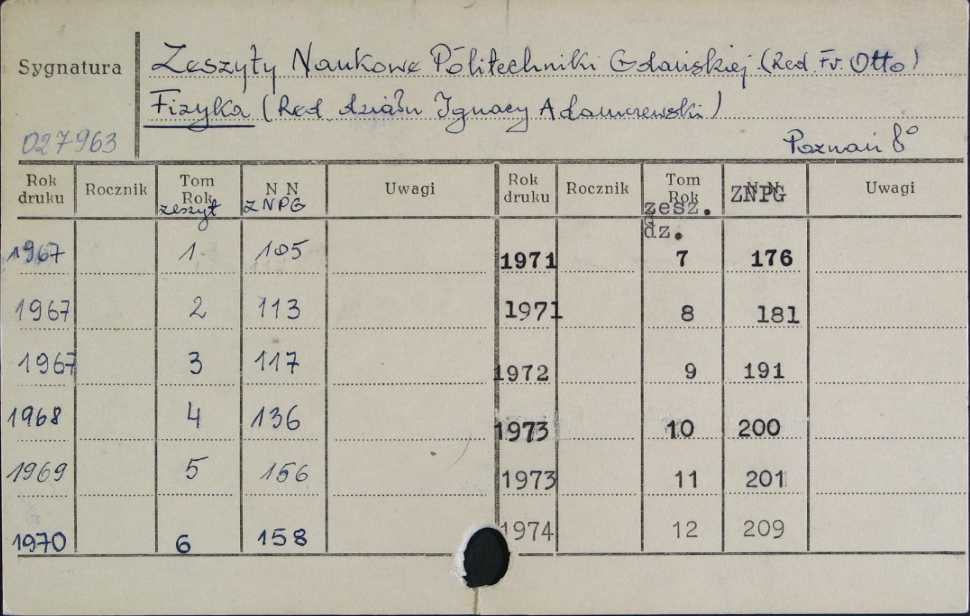 Sygnatura
Zeszyty Naukowe Politechniki Gdańskiej (Red. Fr. Otto)
Fizyka (Red. działu Ignacy Adamczewski)
027963
Poznań 8°
Rok druku Rocznik Tom Rok zeszyt N N ZNPG Uwagi Rok druku Rocznik Tom Rok zesz. dz. N N ZNPG Uwagi
1967 1 105 1971 7 176
1967 2 113 1971 8 181
1967 3 117 1972 9 191
1968 4 136 1973 10 200
1969 5 156 1973 11 201
1970 6 158 1974 12 209